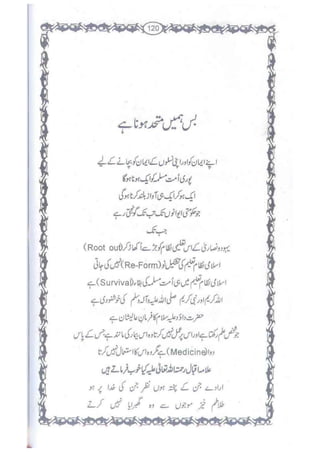 120
بس ہمیں متحد ہونا ہے
اپنے ایمان کو اور اپنی نسلوں کے ایمان کو بچانے کے لیے
پوری اُمت مسلمہ کو ایک ہونا ہوگا
ایک ہو کر ایک ہی آواز بلند کرنا ہوگی
جو حکومتی ایوانوں تک تب تک گونجتی رہے
جب تک
یہود و نصاریٰ کے اس تعلیمی نظام کو جڑ سے اُکھاڑ کر (Root out)
اسلامی نظام تعلیم کی تشکیل نو (Re-Form) نہیں کی جاتی
اسلامی نظام تعلیم میں ہی اُمت مسلمہ کی بقاء (Survival) ہے
اللہ کریم اور نبی کریم صلی اللہ علیہ وآلہ وسلم کی خوشنودی ہے
حضرت داؤد علیہ سلام کا فرمانِ عالیشان ہے
جو شخص علم رکھتا ہے اور اس پر عمل نہیں کرتا وہ اس بیمار کی مانند ہے جس کے پاس
دوا (Medicine) ہے مگر وہ اس کا استعمال نہیں کرتا
علامہ اقبال رحمۃ اللہ تعالیٰ علیہ کیا خوب فرماتے ہیں
ارادے جن کے پختہ ہوں نظر جن کی خدا پر ہو
طلاطم خیز موجوں سے وہ گھبرایا نہیں کرتے